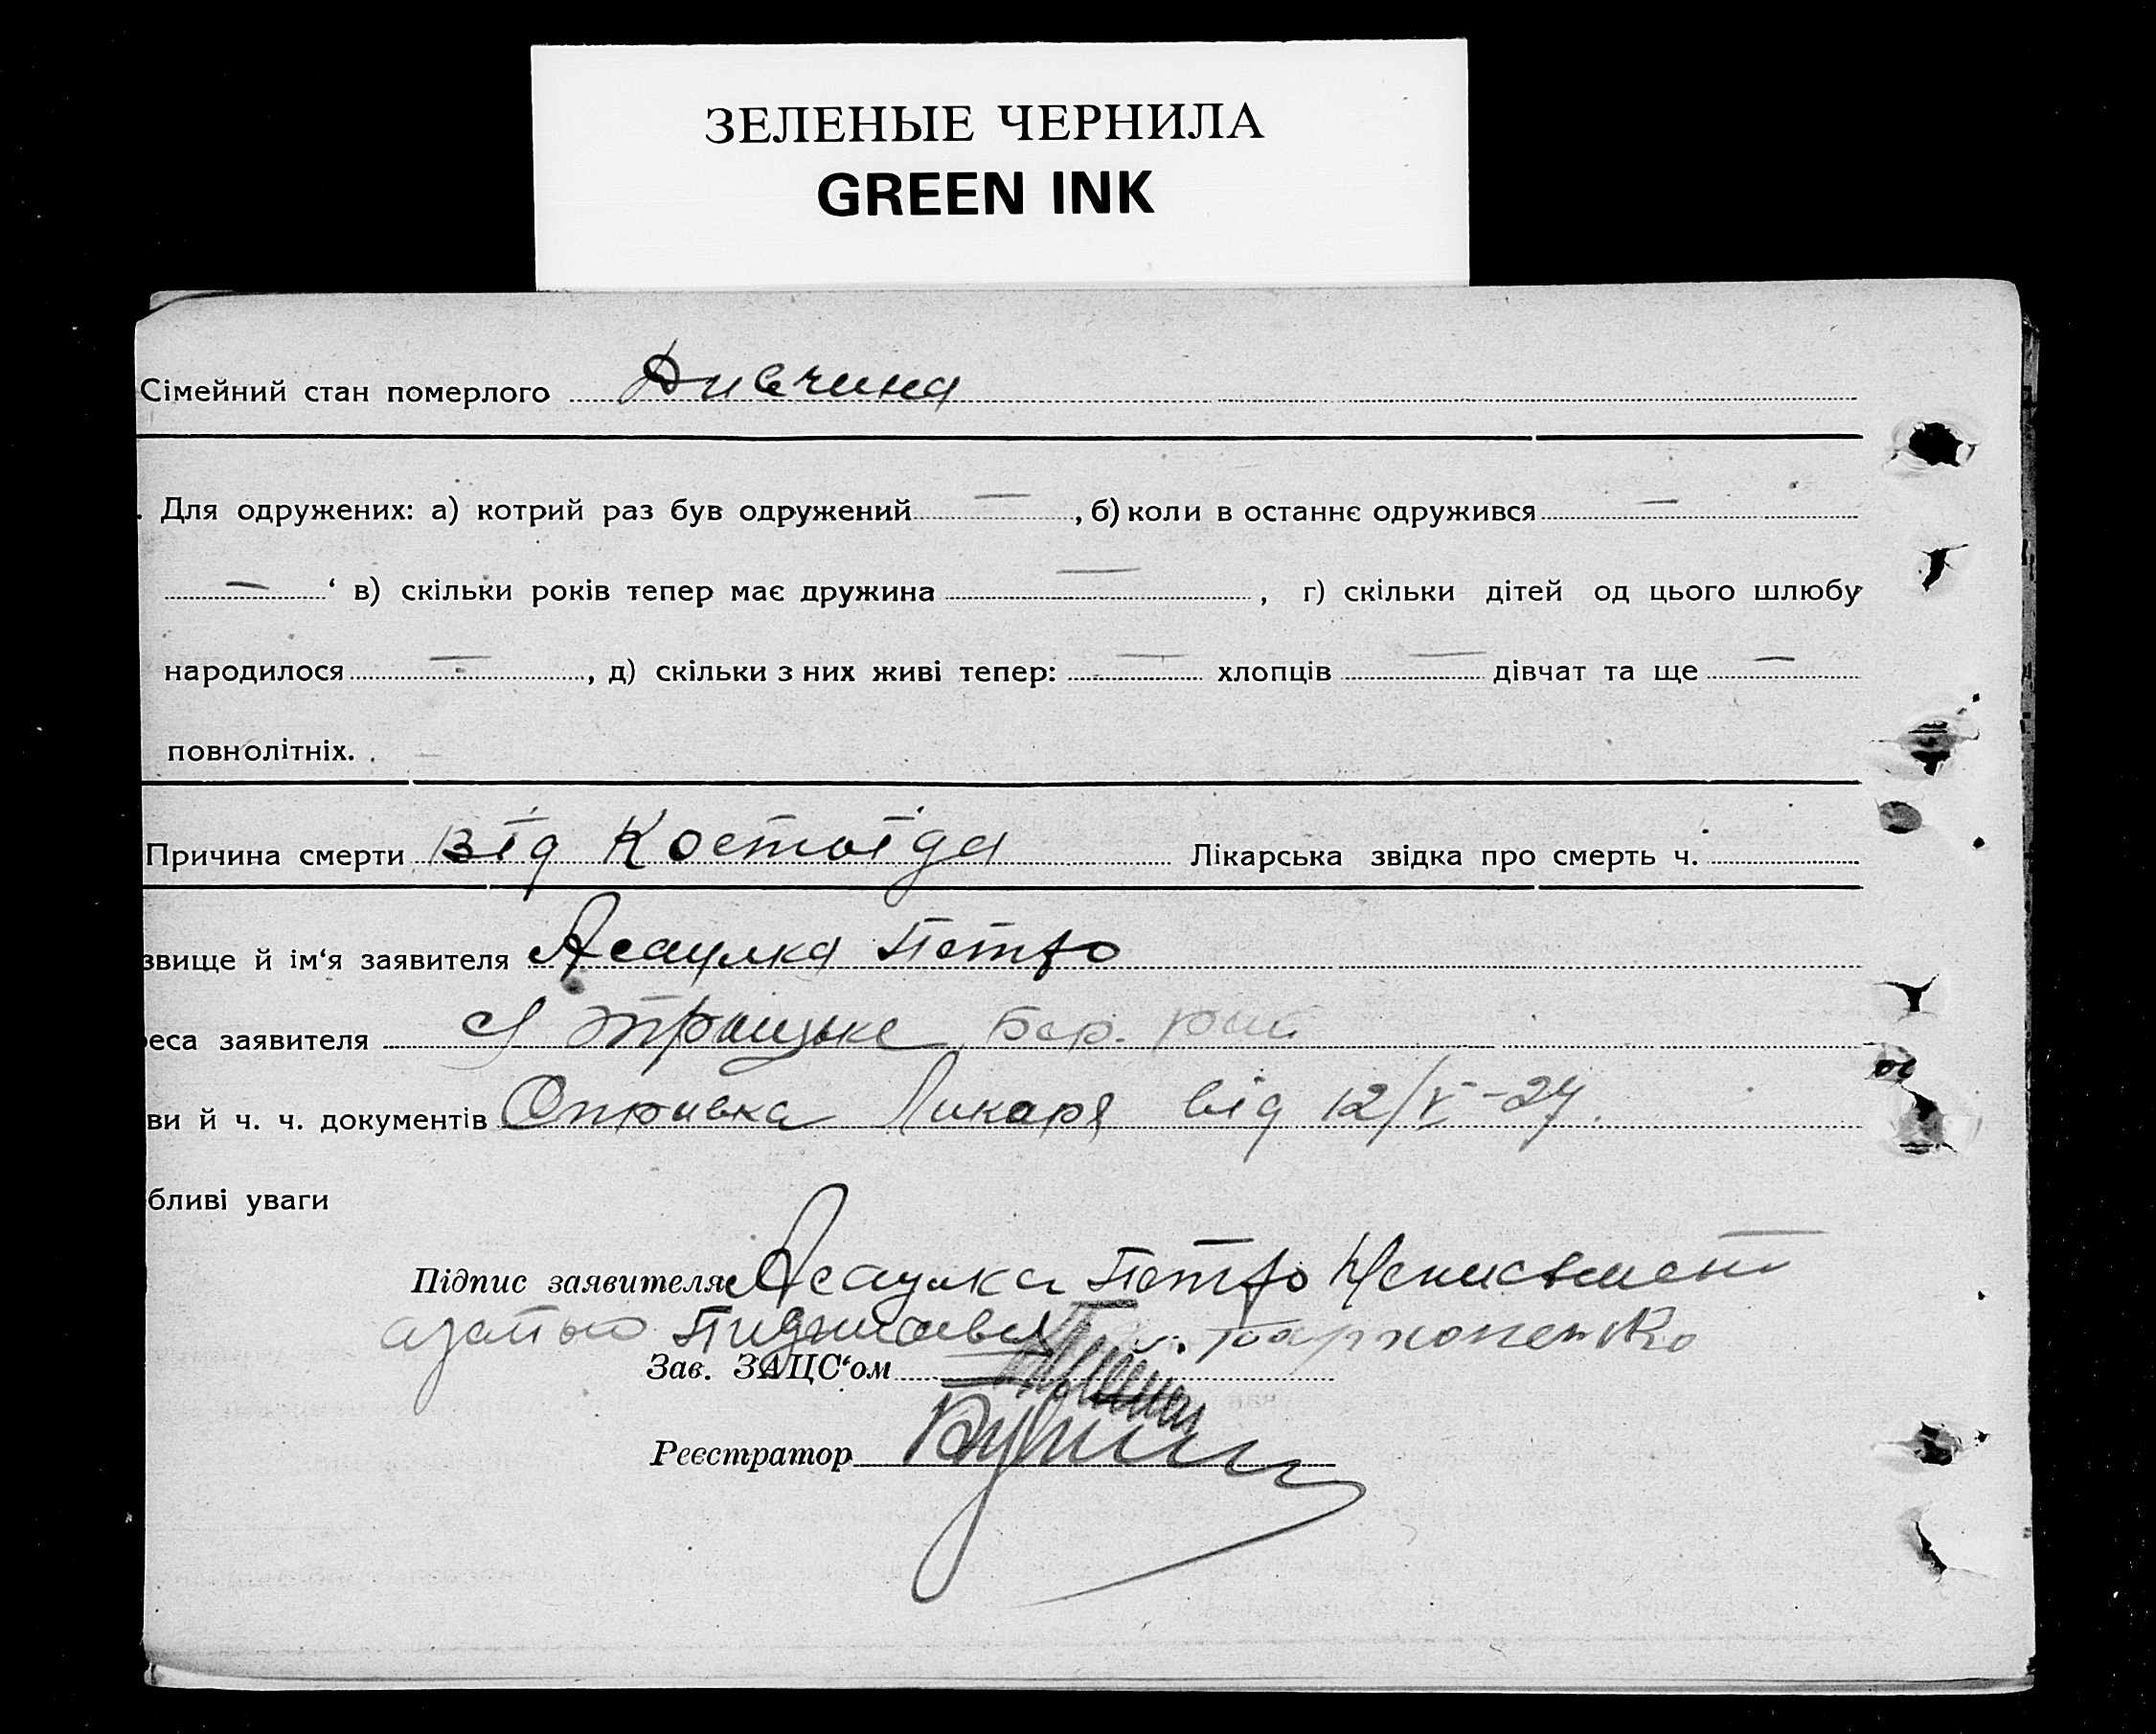 ЗЕЛЕНЫЕ ЧЕРНИЛА
GREEN INK
Сімейний стан померлого Дивчина
Для одружених: а) котрий раз був одружений —, б) коли в останнє одружився —
— ‘ в) скільки років тепер має дружина —, г) скільки дітей од цього шлюбу
народилося —, д) скільки з них живі тепер: — хлопців — дівчат та ще —
повнолітніх.
Причина смерти Від Костоїда Лікарська звідка про смерть ч.
звище й ім‘я заявителя Асаулка Петро
еса заявителя с Троицьке Бер. рай
ви й ч. ч. документів Справка Ликаря від 12/V-27.
бливі уваги
Підпис заявителя Асаулка Петро
Пархоменко
Зав. ЗАЦС‘ом
Реєстратор